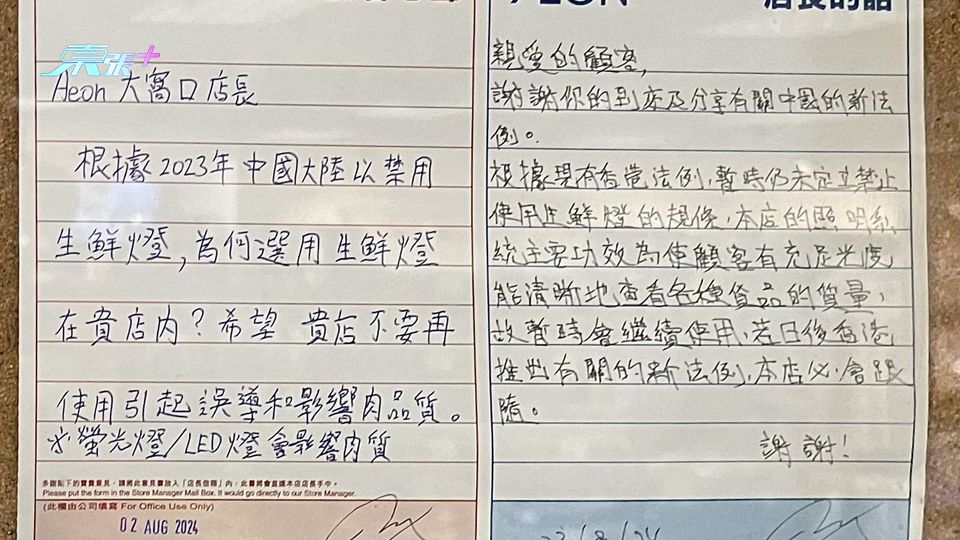 東張+
Aeon 大窩口店長
根據2023年中國大陸以禁用
生鮮燈,為何選用生鮮燈
在貴店內?希望 貴店不要再
使用引起誤導和影響肉品質。
※螢光燈/LED燈會影響肉質
多謝閣下的寶貴意見,請將此意見書放入「店長信箱」內,此書將會直達本店店長手中。
Please put the form in the Store Manager Mail Box. It would go directly to our Store Manager.
(此欄由公司填寫 For Office Use Only)
02 AUG 2024
ÆON
店長的話
親愛的顧客,
謝謝你的到來及分享有關中國的新法
例。
根據現有香港法例,暫時仍未定立禁止
使用生鮮燈的規條,本店的照明系
統主要功效為使顧客有充足光度,
能清晰地查看各種貨品的質量,
故暫時會繼續使用,若日後香港
推出有關的新法例,本店必會跟
隨。
謝謝!